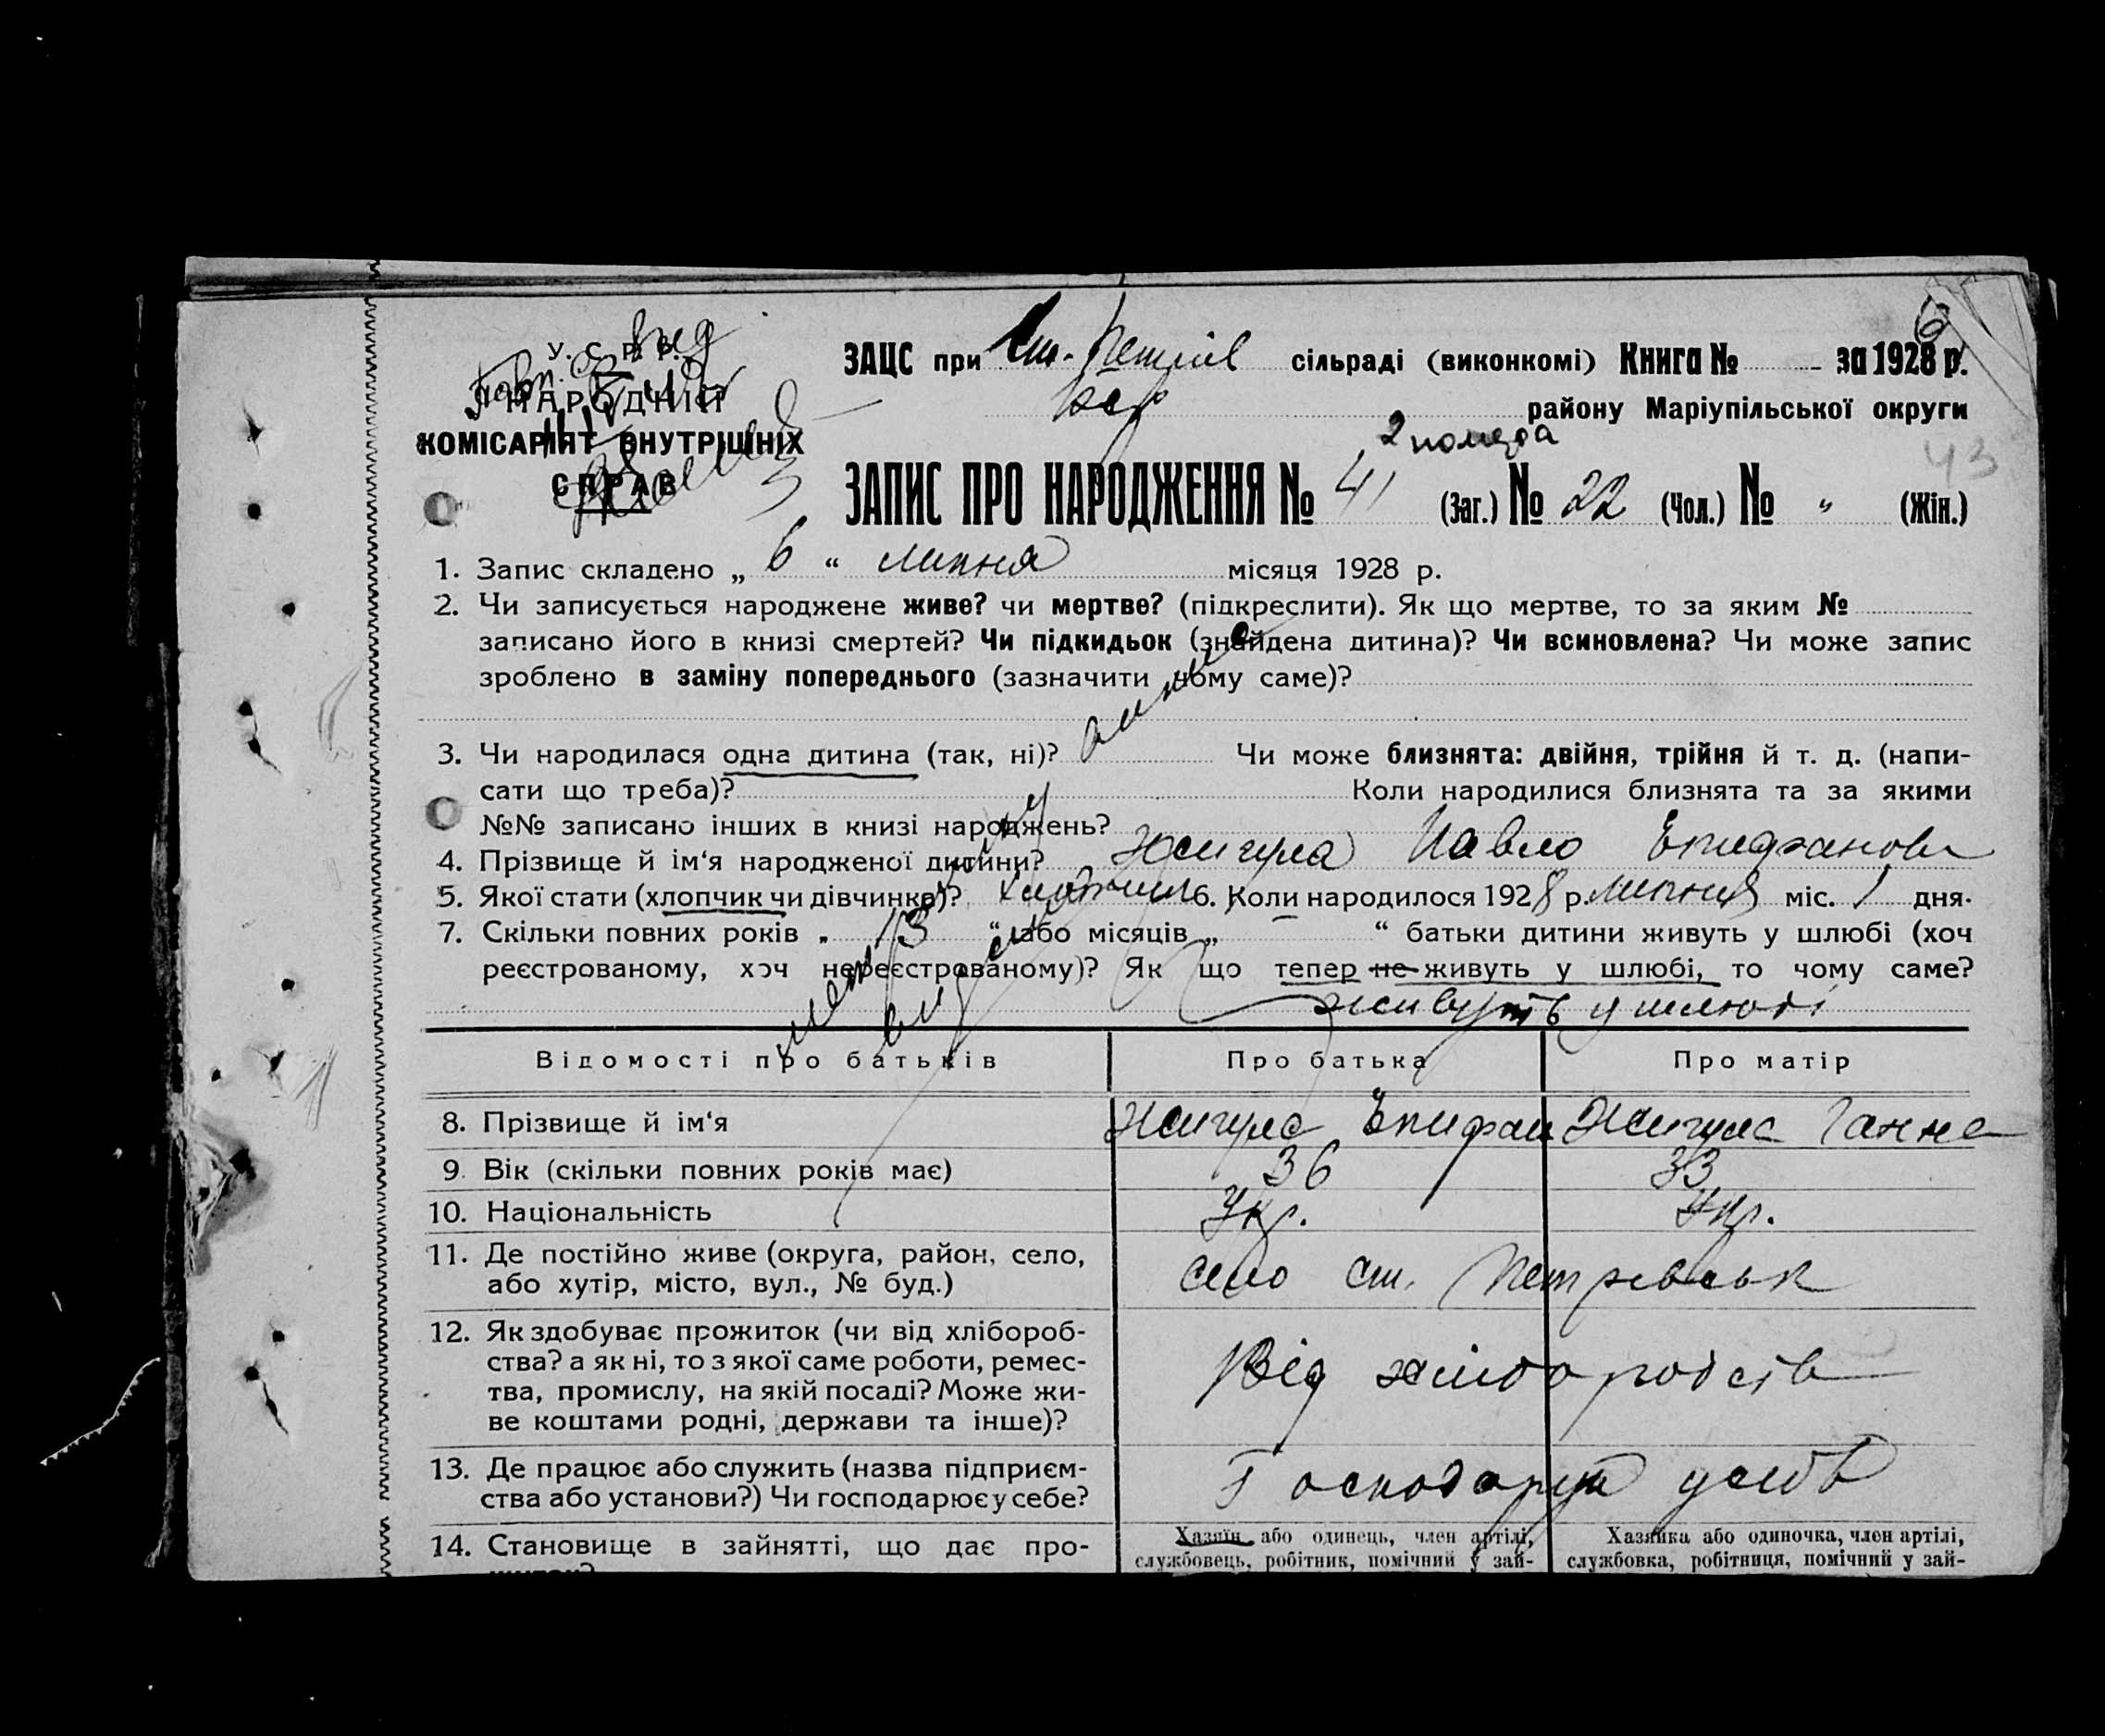 У. С. Р. Р.
НАРОДНІЙ
КОМІСАРІЯТ ВНУТРІШНІХ
СПРАВ
ЗАЦС при Ст.-Петрів сільраді (виконкомі) Книга № за 1928 р.
району Маріупільської округи
43
ЗАПИС ПРО НАРОДЖЕННЯ № 41 (Заг.) № 22 (Чол.) № „ (Жін.)
1. Запис складено „ 6 “ липня місяця 1928 р.
2. Чи записується народжене живе? чи мертве? (підкреслити). Як що мертве, то за яким №
записано його в книзі смертей? Чи підкидьок (знайдена дитина)? Чи всиновлена? Чи може запис
зроблено в заміну попереднього (зазначити чому саме)?
3. Чи народилася одна дитина (так, ні)? Чи може близнята: двійня, трійня й т. д. (напи-
сати що треба)? Коли народилися близнята та за якими
№№ записано інших в книзі народжень?
4. Прізвище й ім‘я народженої дитини? Жигула Павло Епифанови
5. Якої стати (хлопчик чи дівчинка)? хлопчик 6. Коли народилося 1928 р. липня міс. 1 дня.
7. Скільки повних років „ 13 “ або місяців „ — “ батьки дитини живуть у шлюбі (хоч
реєстрованому, хоч нереєстрованому)? Як що тепер не живуть у шлюбі, то чому саме?
живуть у шлюбі
Відомості про батьків Про батька Про матір
8. Прізвище й ім‘я Жигула Епифан Жигула Ганна
9. Вік (скільки повних років має) 36 33
10. Національність Укр. Укр.
11. Де постійно живе (округа, район, село,
або хутір, місто, вул., № буд.) село ст. Петрівськ
12. Як здобуває прожиток (чи від хлібороб-
ства? а як ні, то з якої саме роботи, ремес-
тва, промислу, на якій посаді? Може жи-
ве коштами родні, держави та інше)? Від хліборобств
13. Де працює або служить (назва підприєм-
ства або установи?) Чи господарює у себе? Господарує у себе
14. Становище в зайнятті, що дає про-
Хазяїн або одинець, член артілі,
службовець, робітник, помічний у зай-
Хазяйка або одиночка, член артілі,
службовка, робітниця, помічний у зай-